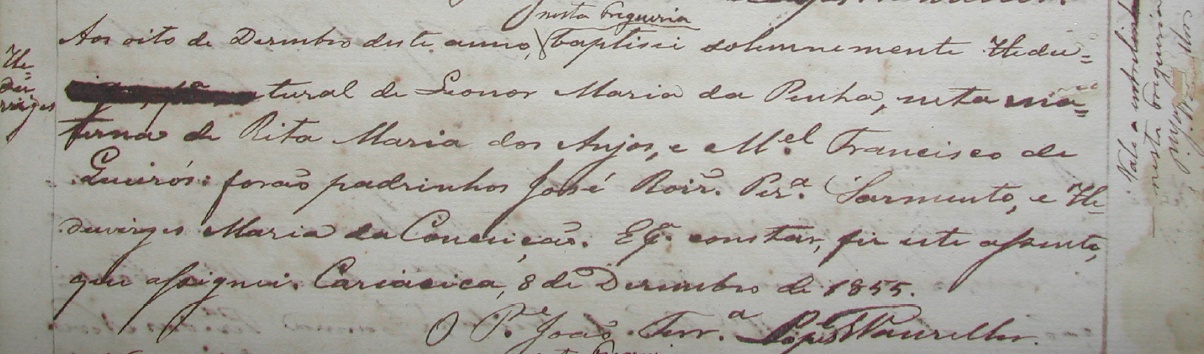 nesta freguesia
Aos oito de Dezembro deste anno, baptisei solemnemente Hedu=
tural de Leonor Maria da Penha, neta ma=
terna de Rita Maria dos Anjos, e M.el Francisco de
Queirós: forão padrinhos José Roiz. Per.a Sarmento, e He=
duviges Maria da Conceição. E p.a constar, fiz este assento,
que assignei. Cariacica, 8 de Dezembro de 1855.
O P.e João Ferr.a Lopes
He=
du=
viges
Vale a entrelinha
nesta freguesia